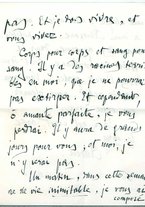 pas. Et je dois vivre, et
vous vivez.
Corps pour corps et sang pour
sang. Il y a des racines terri-
bles en moi, que je ne pourrai
pas extirper. Et cependant,
ô amante parfaite, je vous
perdrai. Il y aura de grands
jours pour vous, et moi, je
n'y serai pas.
Un matin, sous cette
ne de vie inimitable, je vous ai
composé